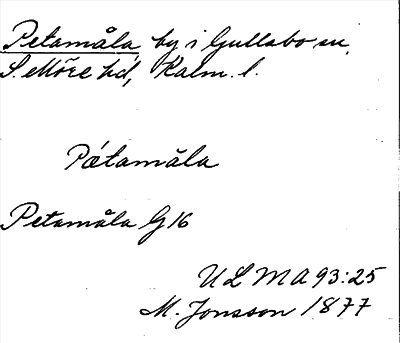 Petamåla by i Gullabo sn,
S. Möre hd, Kalm. l.
Pǽtamåla
Petamåla G 16
ULMA 93:25
M. Jonsson 1877